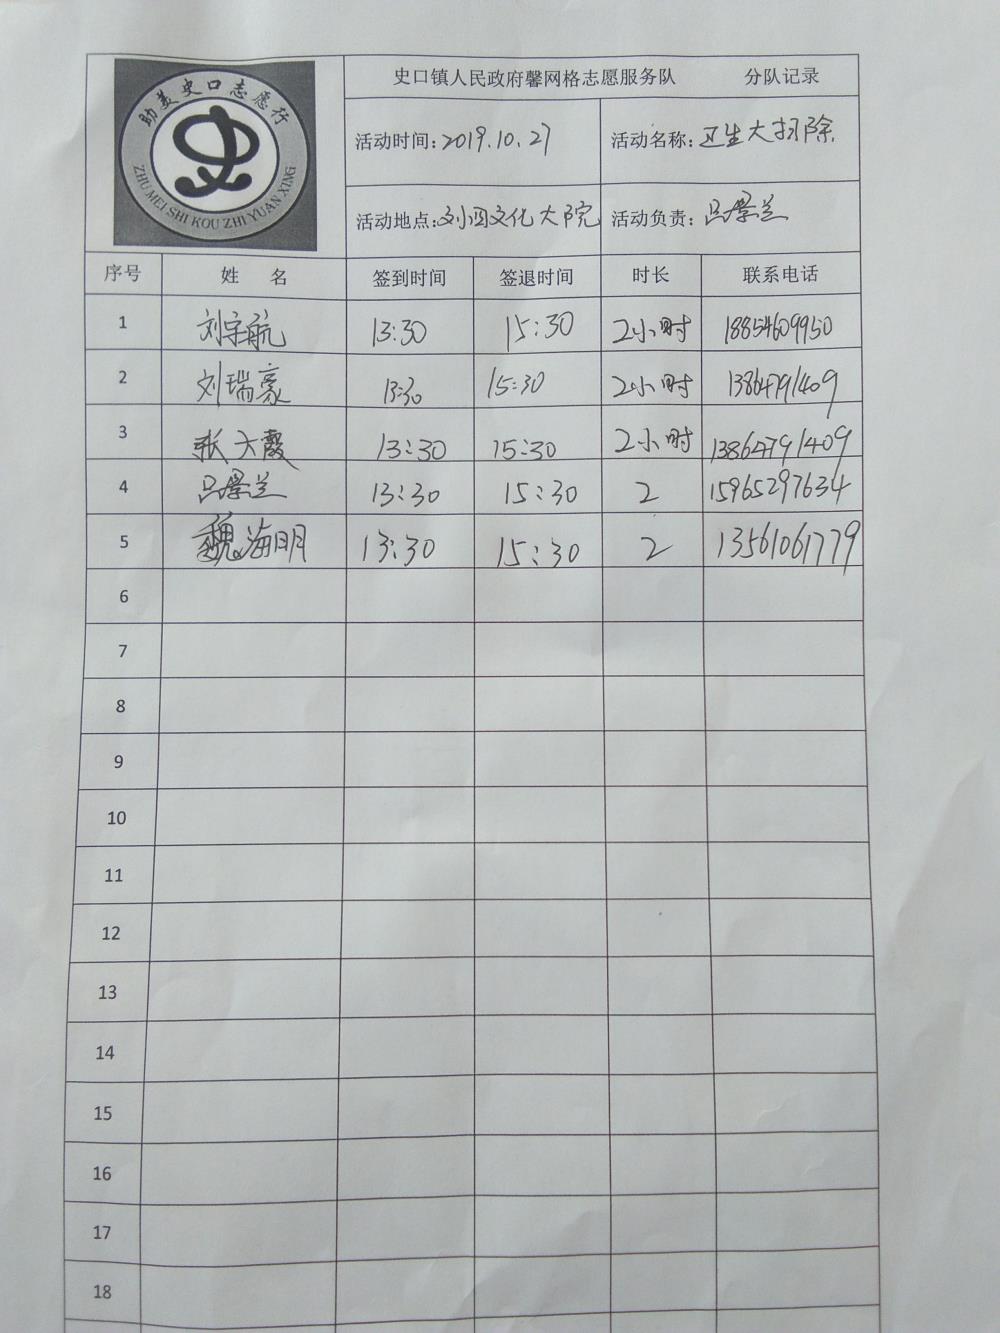 助美史口志愿行
ZHU MEI SHI KOU ZHI YUAN XING
史口镇人民政府馨网格志愿服务队 分队记录
活动时间:2019.10.27 活动名称:卫生大扫除
活动地点:刘图文化大院 活动负责:吕学兰
序号 姓 名 签到时间 签退时间 时长 联系电话
1 刘宇航 13:30 15:30 2小时 18854609950
2 刘瑞豪 13:30 15:30 2小时 13864791409
3 张大霞 13:30 15:30 2小时 13864791409
4 吕学兰 13:30 15:30 2 15965297634
5 魏海明 13:30 15:30 2 13561061779
6
7
8
9
10
11
12
13
14
15
16
17
18